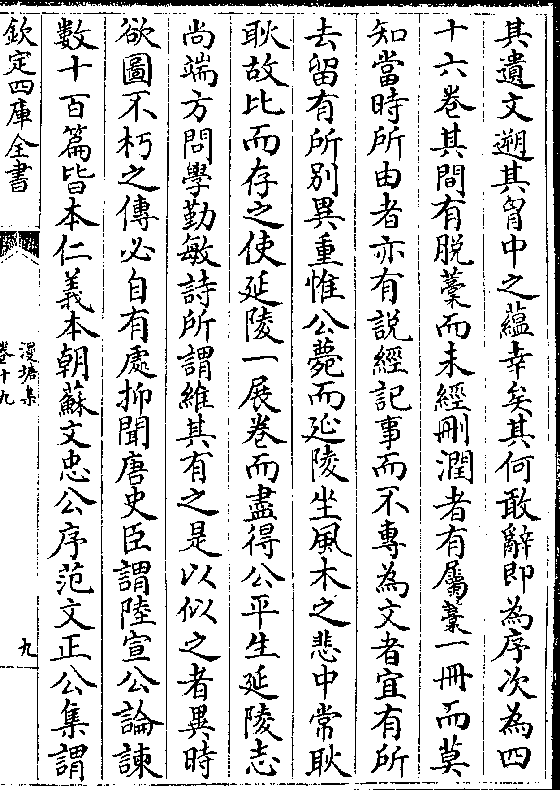 其遺文遡其胷中之蘊幸矣其何敢辭即為序次為四
十六卷其間有脫藳而未經刪潤者有屬藁一冊而莫
知當時所由者亦有說經記事而不專為文者宜有所
去留有所別異重惟公薨而延陵坐風木之悲中常耿
耿故比而存之使延陵一展卷而盡得公平生延陵志
尚端方問學勤敏詩所謂維其有之是以似之者異時
欲圖不朽之傳必自有處抑聞唐史臣謂陸宣公論諫
數十百篇皆本仁義本朝蘇文忠公序范文正公集謂
欽定四庫全書
漫塘集
卷十九
九